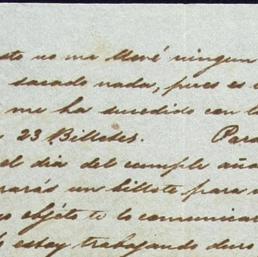 sto no me llevé ningun
sacado nada, pues es
me ha sucedido con l
23 Billetes. Para
el dia del cumple año
rarás un billete para
yo objéto te lo comunica
estoy trabajando duro